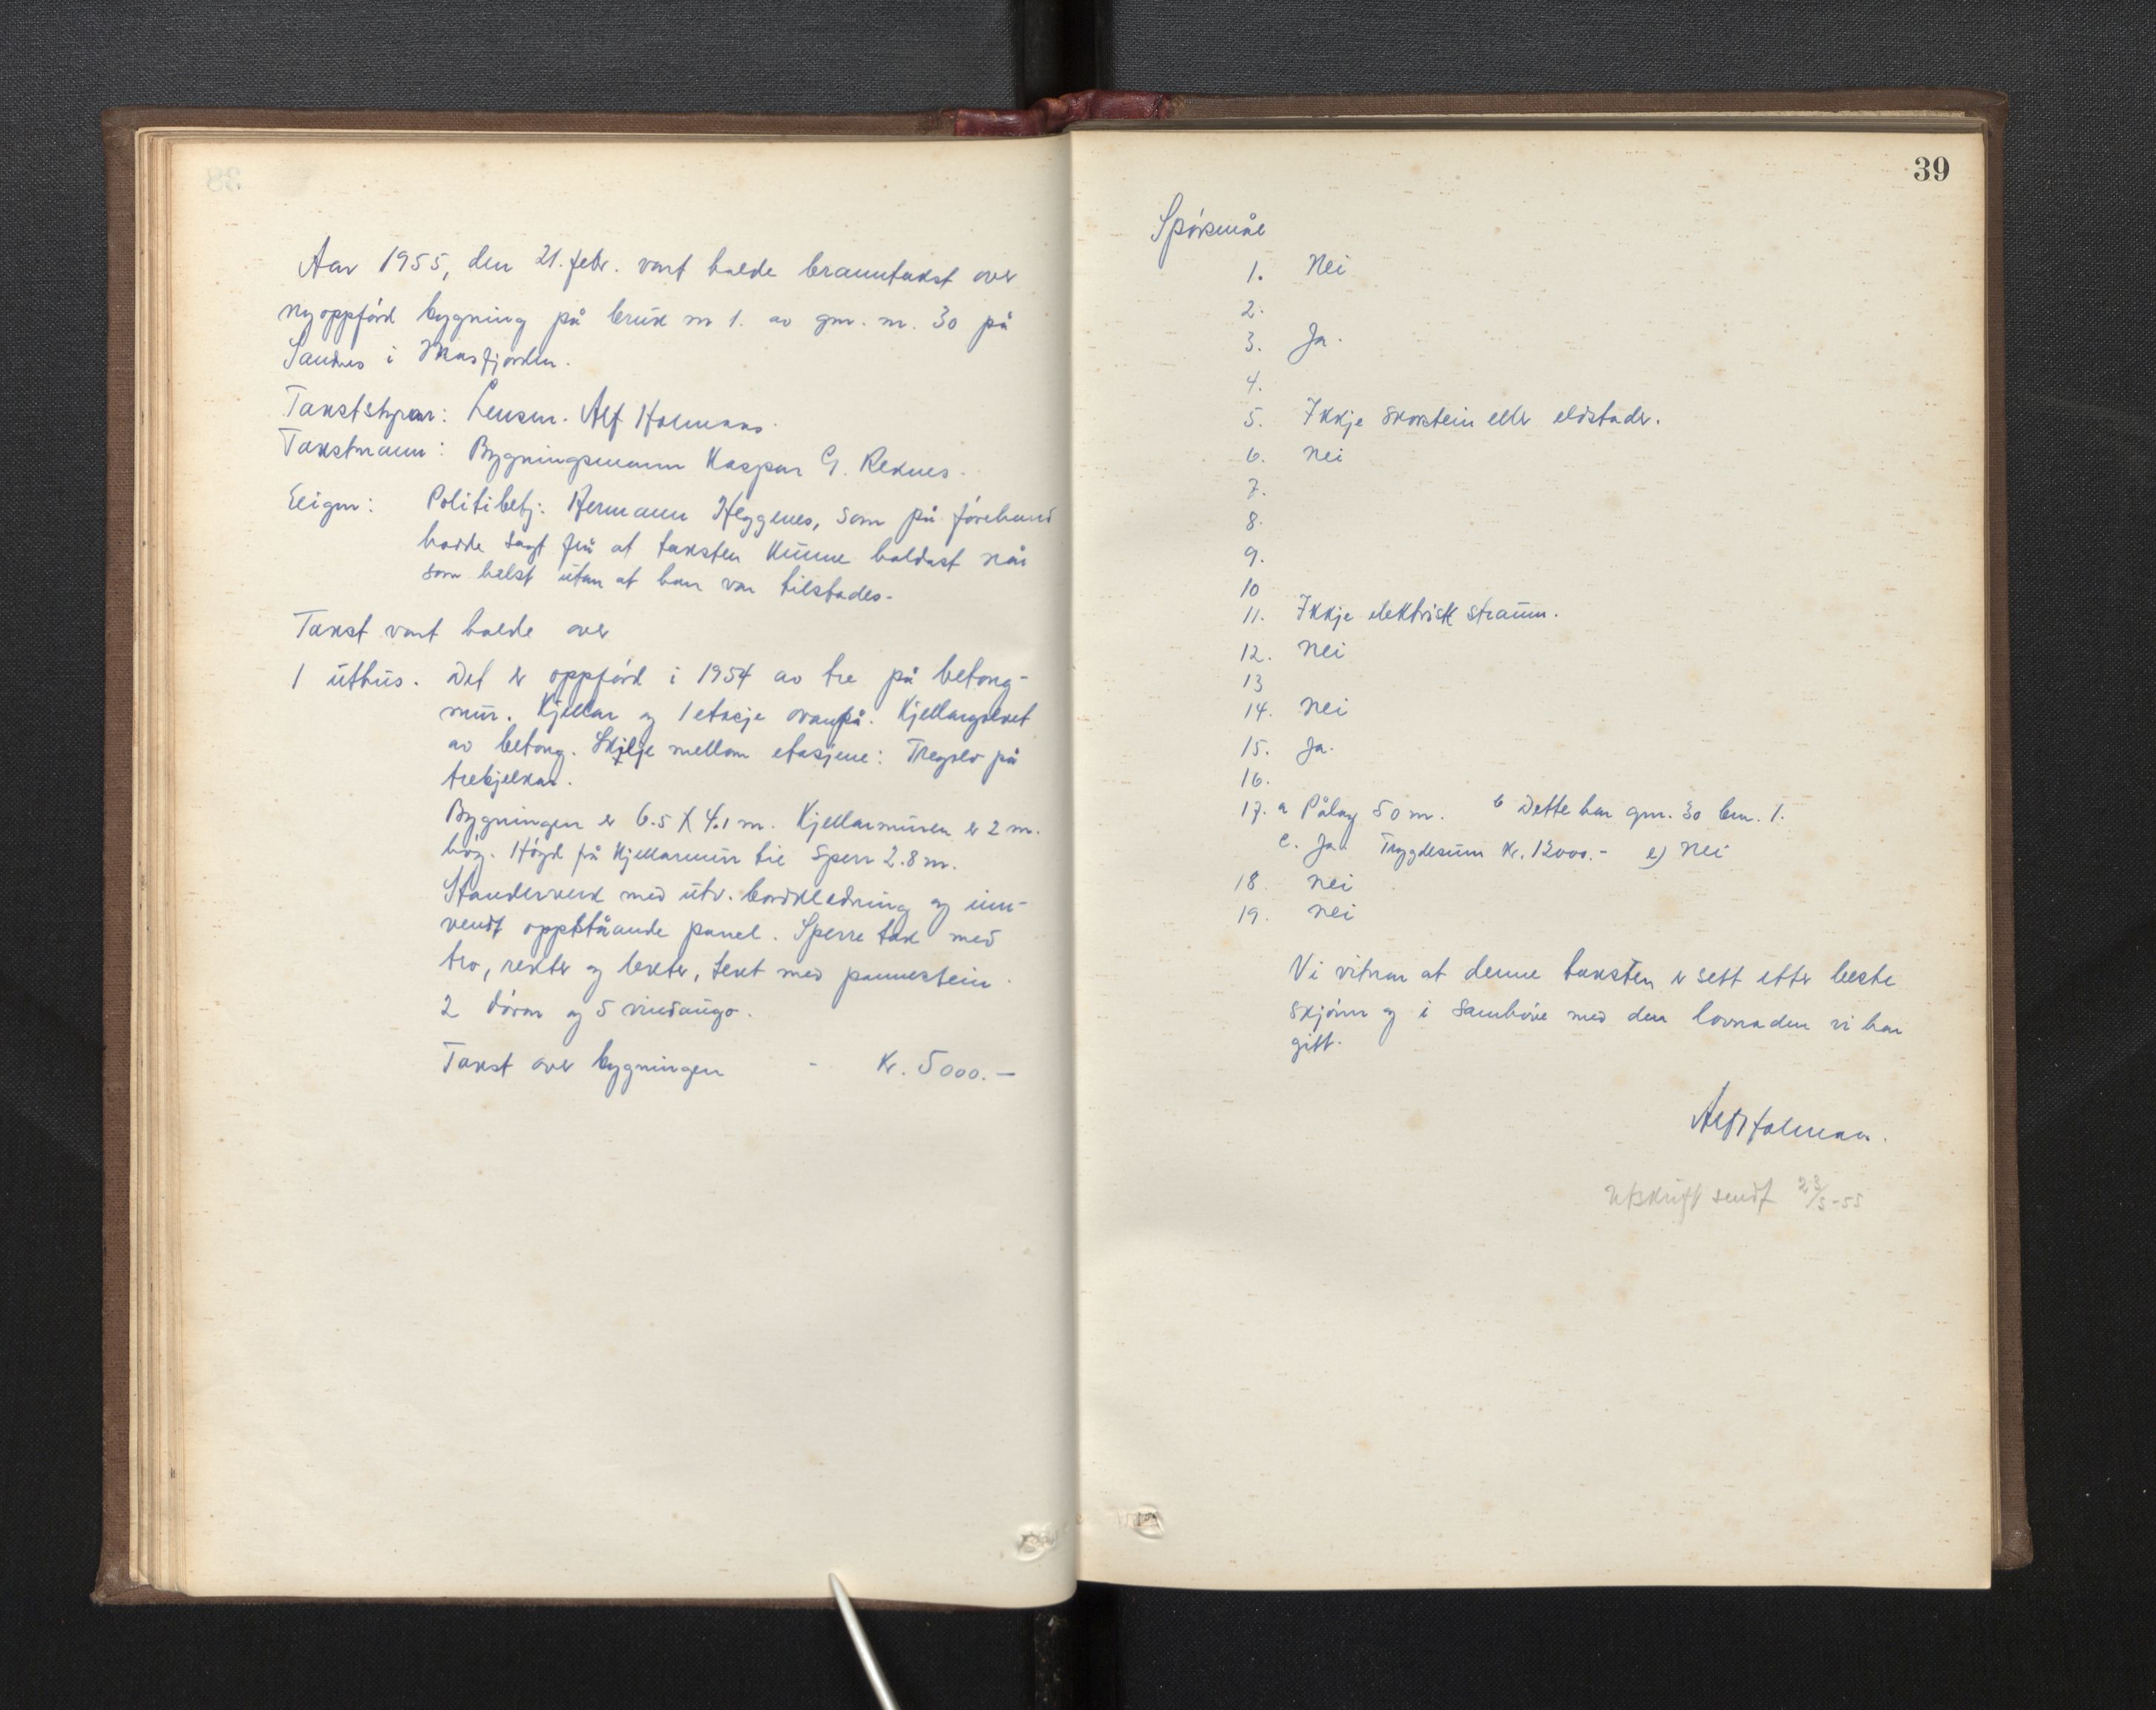 Aar 1955, den 21. febr. vart halde branntakst over
nyoppförd bygning på bruk nr 1. av gnr. nr. 30 på
Sandnes i Masfjorden.
Takststyrar: Lensm. Alf Holmaas.
Takstmann: Bygningsmann Kaspar G. Reknes.
Eigar: Politibetj: Hermann Heggenes, som på förehand
hadde sagt frå at taksten kunne haldast når
som helst utan at han var tilstades.
Takst vart halde over
1 uthus. Det er oppförd i 1954 av tre på betong-
mur. Kjellar og 1 etasje ovanpå. Kjellargolvet
av betong. Skilje mellom etasjene: Tregolv på
trebjelkar.
Bygningen er 6.5 X 4.1 m. Kjellarmuren er 2 m.
hög. Högd frå Kjellarmur til sperr 2.8 m.
Standerverk med utv. bordkledning og inn-
vendt oppståande panel. Sperre tak med
tro, rekter og lekter, tekt med pannestein.
2 dörar og 5 vindaugo.
Takst over bygningen - Kr. 5000.-
39
Spörsmål
1. Nei
2.
3. Ja.
4.
5. Ikkje skorstein eller eldstader.
6. Nei
7.
8.
9.
10
11. Ikkje elektrisk straum.
12. Nei
13
14. Nei
15. Ja.
16.
17. a Pålag 50 m. b Dette har gnr. 30 bnr. 1.
c. Ja. Trygdesum Kr. 12000.- e) Nei
18. Nei
19. Nei
Vi vitnar at denne taksten er sett etter beste
skjönn og i samhöve med den lovnaden vi har
gitt.
Alf Holmaas.
Utskrift sendt 23/5-55